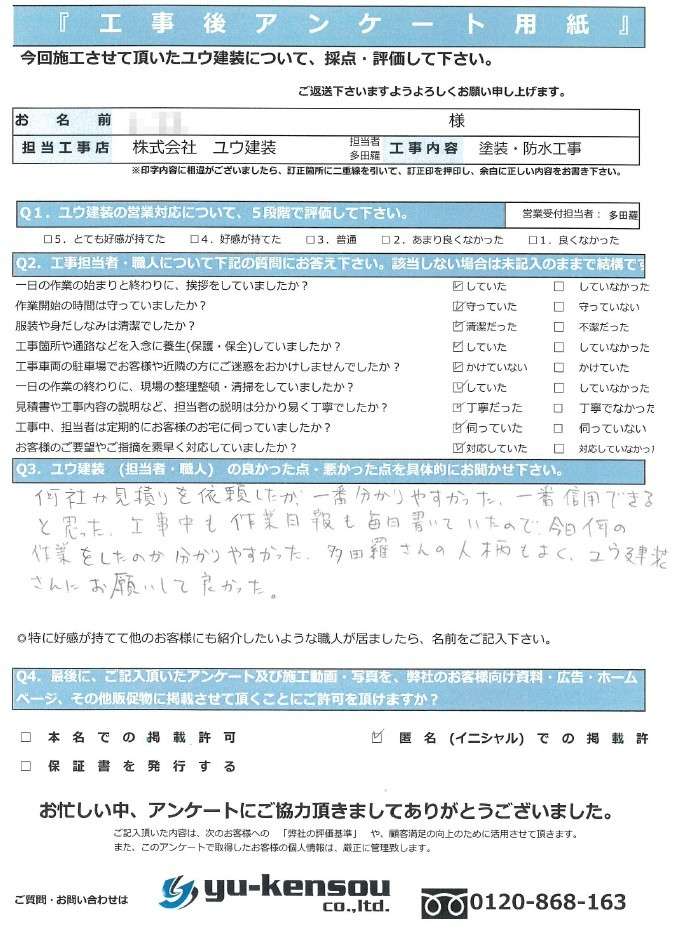 『工事後アンケート用紙』
今回施工させて頂いたユウ建装について、採点・評価して下さい。
ご返送下さいますようよろしくお願い申し上げます。
お名前 様
担当工事店 株式会社 ユウ建装 担当者 多田羅 工事内容 塗装・防水工事
※印字内容に相違がございましたら、訂正箇所に二重線を引いて、訂正印を押印し、余白に正しい内容をお書き下さい。
Q1．ユウ建装の営業対応について、５段階で評価して下さい。 営業受付担当者： 多田羅
□５．とても好感が持てた □４．好感が持てた □３．普通 □２．あまり良くなかった □１．良くなかった
Q2．工事担当者・職人について下記の質問にお答え下さい。該当しない場合は未記入のままで結構です
一日の作業の始まりと終わりに、挨拶をしていましたか？ ☑していた □していなかった
作業開始の時間は守っていましたか？ ☑守っていた □守っていない
服装や身だしなみは清潔でしたか？ ☑清潔だった □不潔だった
工事箇所や通路などを入念に養生(保護・保全)していましたか？ ☑していた □していなかった
工事車両の駐車場でお客様や近隣の方にご迷惑をおかけしませんでしたか？ ☑かけていない □かけていた
一日の作業の終わりに、現場の整理整頓・清掃をしていましたか？ ☑していた □していなかった
見積書や工事内容の説明など、担当者の説明は分かり易く丁寧でしたか？ ☑丁寧だった □丁寧でなかった
工事中、担当者は定期的にお客様のお宅に伺っていましたか？ ☑伺っていた □伺っていない
お客様のご要望やご指摘を素早く対応していましたか？ ☑対応していた □対応していなかっ
Q3．ユウ建装 （担当者・職人） の良かった点・悪かった点を具体的にお聞かせ下さい。
何社か見積りを依頼したが、一番分かりやすかった、一番信用できる
と思った。工事中も作業日報も毎日書いていたので、今日何の
作業をしたのか分かりやすかった。多田羅さんの人柄もよく、ユウ建装
さんにお願いして良かった。
◎特に好感が持てて他のお客様にも紹介したいような職人が居ましたら、名前をご記入下さい。
Q4．最後に、ご記入頂いたアンケート及び施工動画・写真を、弊社のお客様向け資料・広告・ホーム
ページ、その他販促物に掲載させて頂くことにご許可を頂けますか？
□ 本名での掲載許可 ☑ 匿名(イニシャル)での掲載許
□ 保証書を発行する
お忙しい中、アンケートにご協力頂きましてありがとうございました。
ご記入頂いた内容は、次のお客様への 「弊社の評価基準」 や、顧客満足の向上のために活用させて頂きます。
また、このアンケートで取得したお客様の個人情報は、厳正に管理致します。
ご質問・お問い合わせは yu-kensou co.,ltd. 0120-868-163